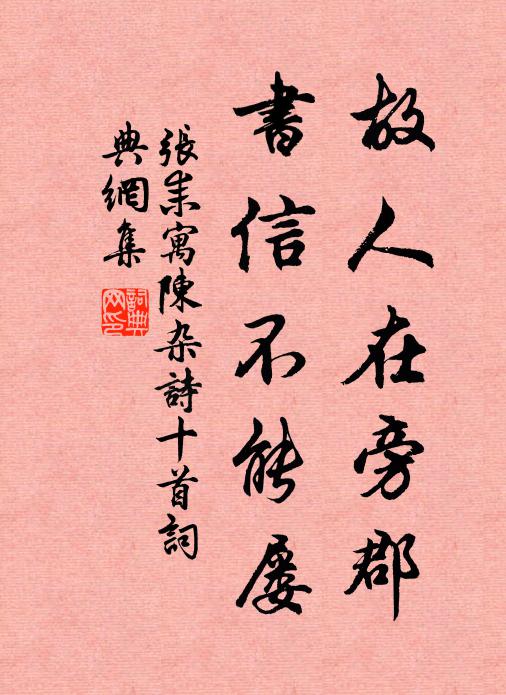 故人在旁郡
書信不能屡
張耒寓陳杂詩十首詞
典網集
詞典网印